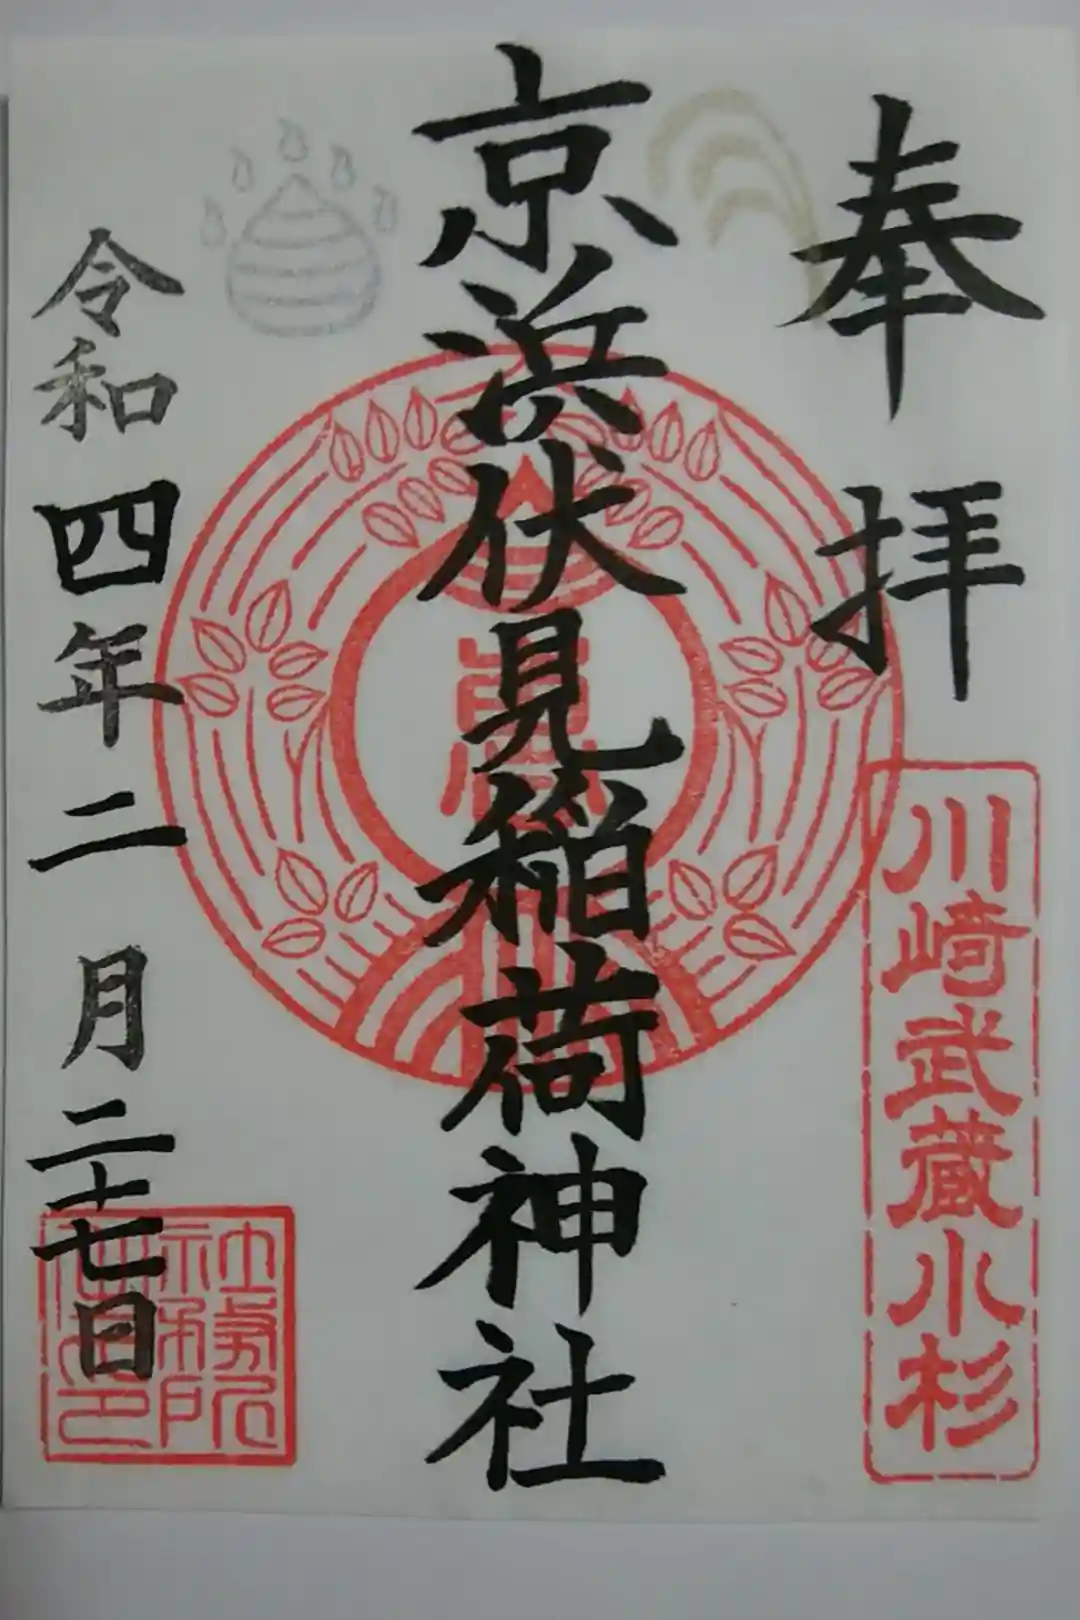 奉拝
川﨑武蔵小杉
京浜伏見稲荷神社
令和四年二月二十七日